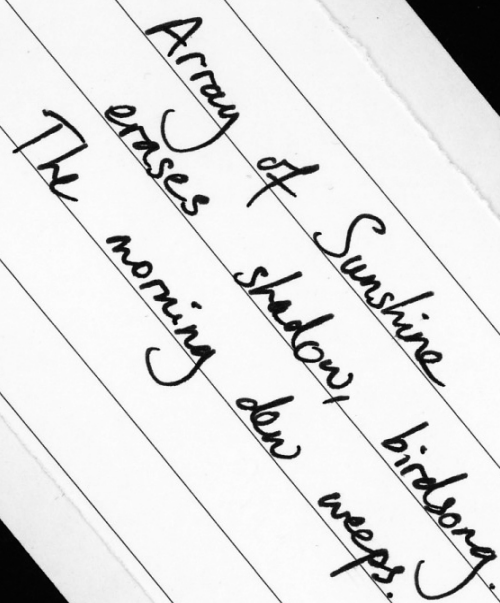 Array of Sunshine
erases shadow, birdsong.
The morning dew weeps.